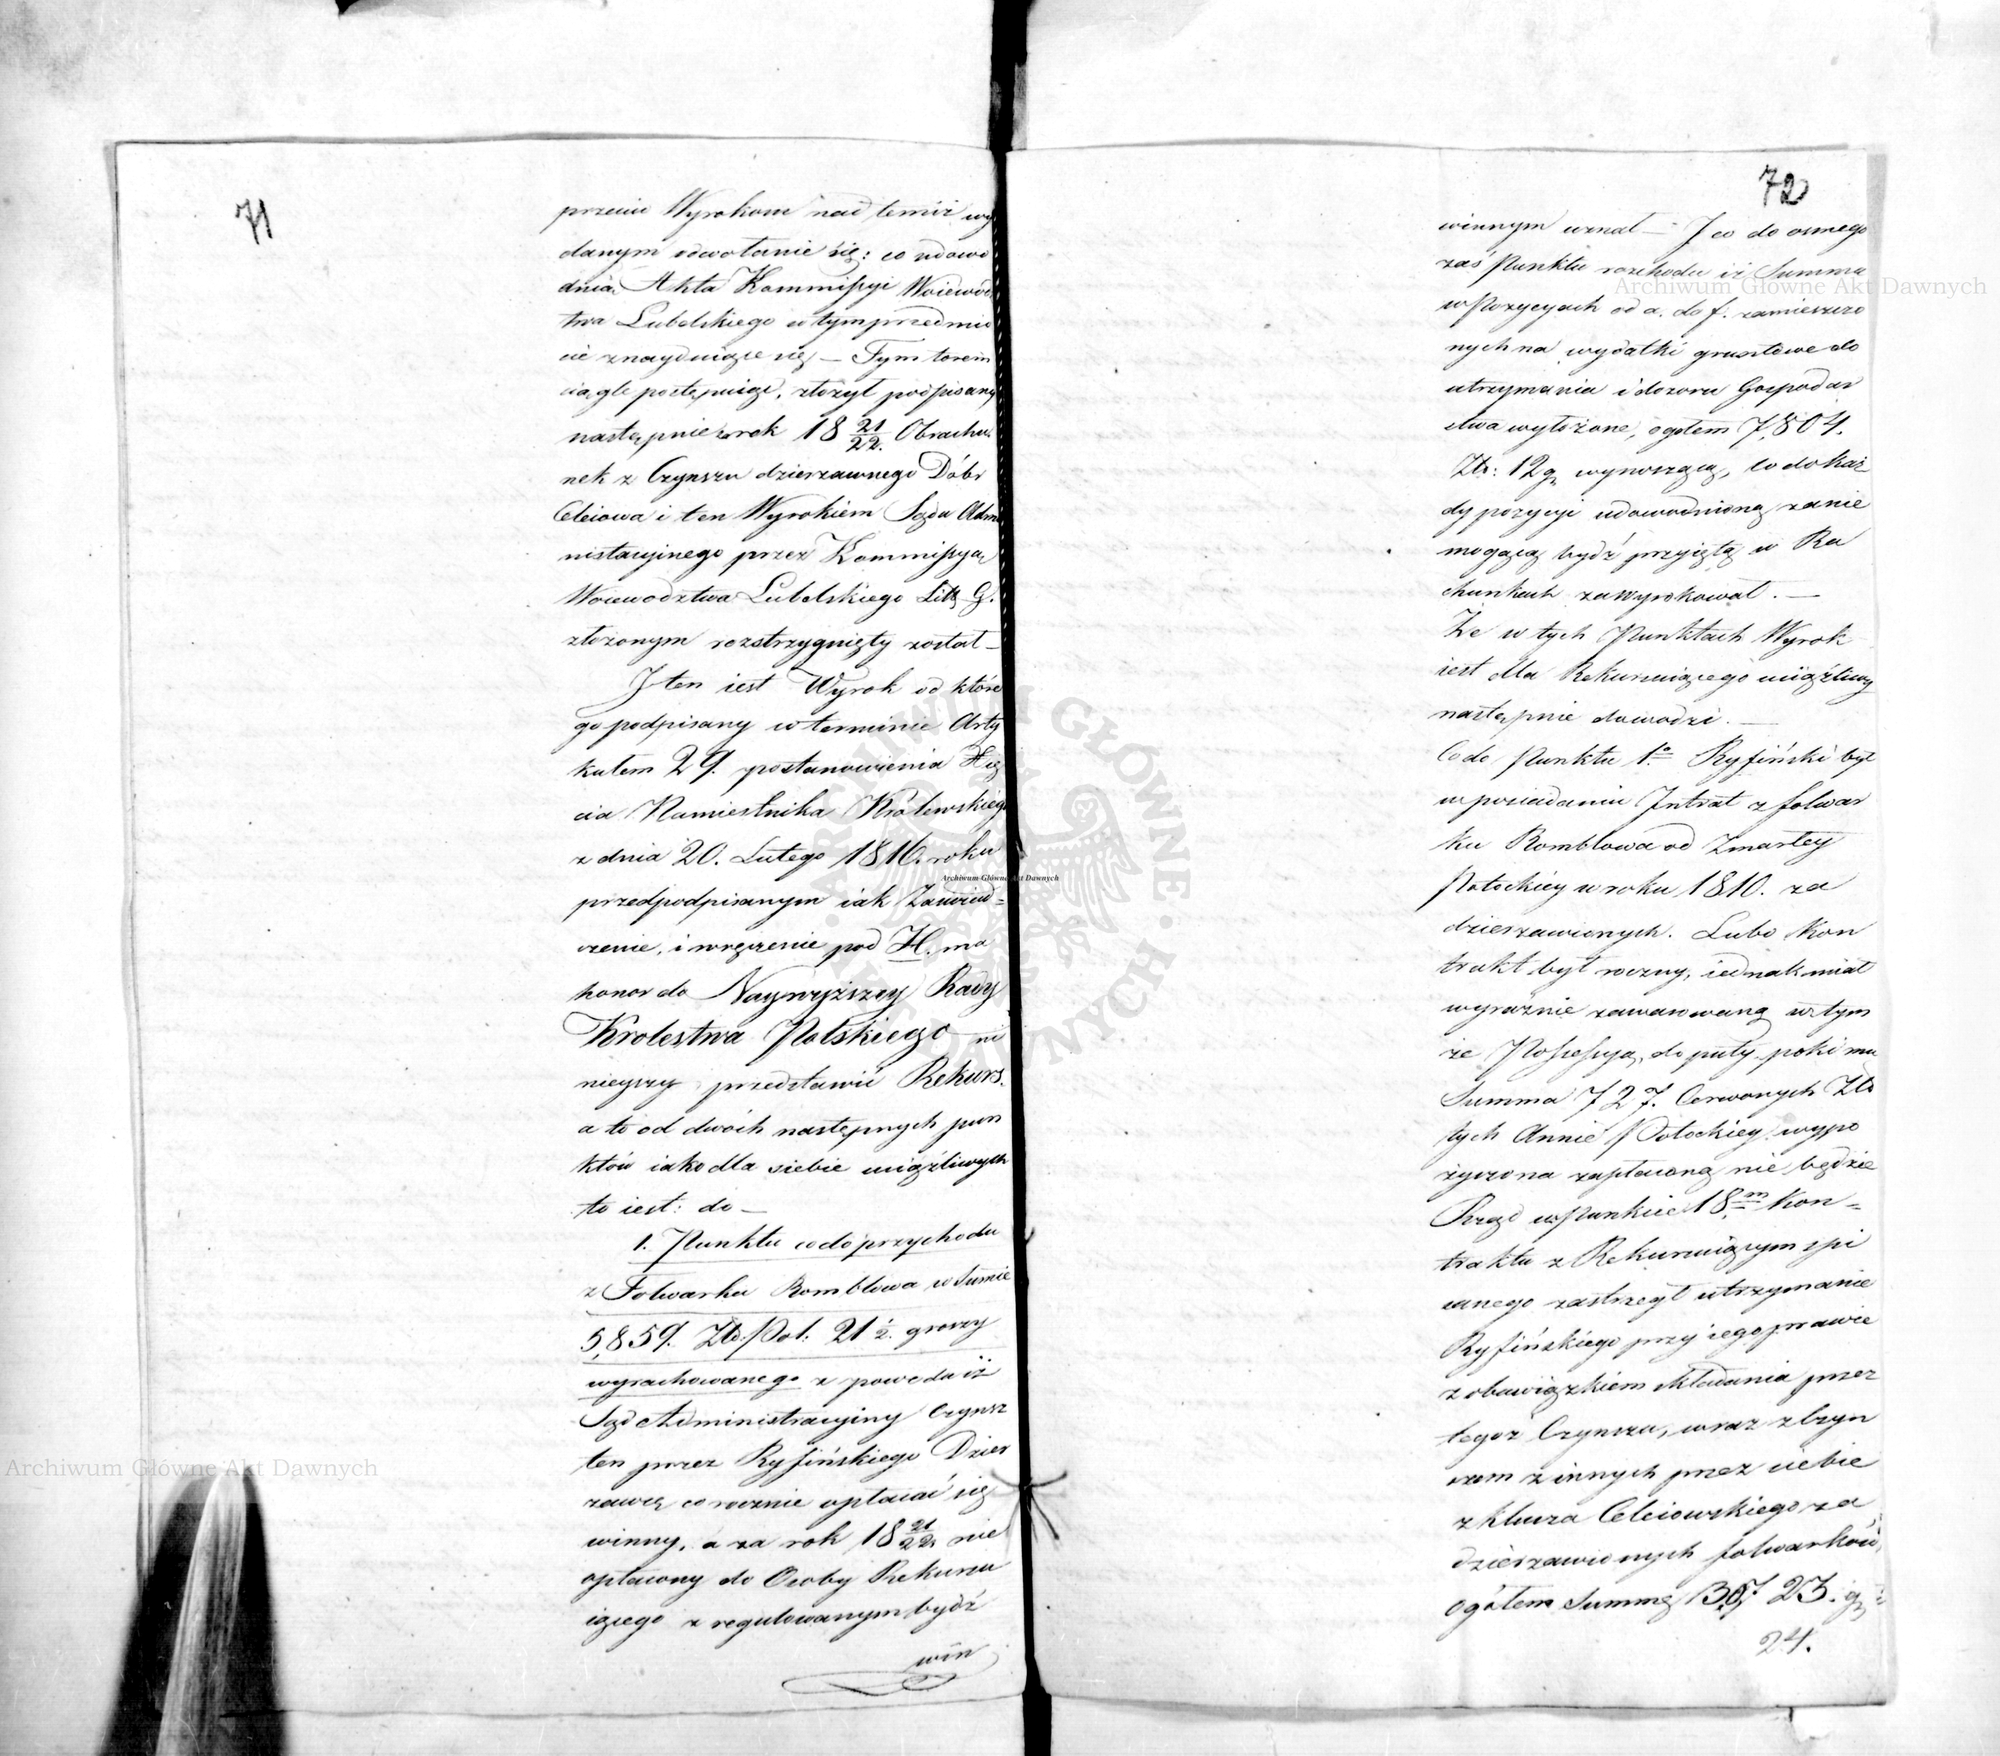 71
przeciw Wyrokom nad temiż wy
danym odwołanie się: co udowo
dnia Akta Kommissyi Woiewódz
twa Lubelskiego w tym przedmio
cie znayduiące się — Tym torem
ciągle postępuiąc, złożył podpisany
następnie za rok 18 21/22. Obrachu
nek z Czynszu dzierzawnego Dóbr
Celeiowa i ten Wyrokiem Sądu Admi
nistacyinego przez Kommissyą
Woiewodztwa Lubelskiego Litt G.
złożonym rozstrzygnięty został —
I ten iest Wyrok od które
go podpisany w terminie Arty
kułem 29. postanowienia Xię
cia Namiestnika Królewskiego
z dnia 20. Lutego 1816. roku
przedpodpisanym iak Zaświad=
czenie, i wręczenie pod H. ma
honor do Naywyższey Rady
Krolestwa Polskiego ni
nieyszy przedstawić Rekurs.
a to od dwóch następnych pun
któw iako dla siebie uciążliwych
to iest: do —
1. Punktu co do przychodu
z Folwarku Rombłowa w Sumie
5,859. Złt. Pol. 21 1/2. groszy
wyrachowanego z powodu iż
Sąd Administracyiny Czynsz
ten przez Ryfińskiego Dzier
zawcę corocznie opłacać się
winny, a za rok 18 21/22 nie
opłacony do Osoby Rekursu
iącego z regulowanym bydź
win
72
winnym uznał — I co do osmego
zaś Punktu rozchodu iż Summa
w Pozycyach od a. do f. zamieszczo
nych na wydatki gruntowe do
utrzymania i dozoru Gospodar
stwa wyłożone, ogołem 7,804.
Złt: 12 gr wynoszącą, co do każ
dy pozycyi udowodnioną za nie
mogącą bydź przyiętą w Ra
chunkach zawyrokował. —
Że w tych Punktach Wyrok
iest dla Rekursuiącego uciążliwy
następnie dowodzi. —
Co do Punktu 1o Ryfiński był
w posiadaniu Intrat z folwar
ku Rombłowa od Zmarłey
Potockiey w roku 1810. za
dzierzawionych. Lubo Kon
trakt był roczny, iednak miał
wyraźnie zawarowaną w tym
że Possessyą, do puty poki mu
Summa 727. Czerwonych Zło
tych Annie Potockiey wypo
życzona zapłaconą nie będzie
Rząd w Punkcie 18.m Kon=
traktu z Rekursuiącym spi
sanego zastrzegł utrzymanie
Ryfińskiego przy iego prawie
z obowiązkiem składania przez
tegoż Czynszu, wraz z Czyn
szem z innych przez siebie
z klucza Celeiowskiego za
dzierzawionych folwarków,
ogółem Summę 23. gr
24.
Archiwum Główne Akt Dawnych
Archiwum Główne Akt Dawnych
Archiwum Główne Akt Dawnych
ARCHIWUM GŁÓWNE AKT DAWNYCH